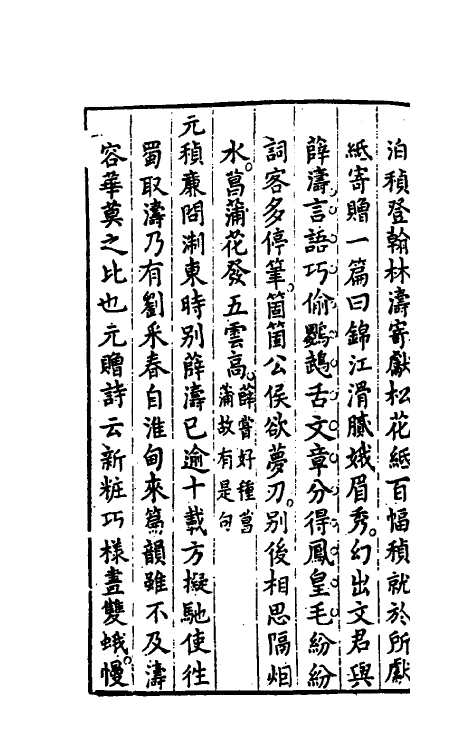 泊稹登翰林濤寄獻松花紙百幅稹就於所獻
紙寄贈一篇曰錦江滑膩娥眉秀。幻出文君與
薛濤言語巧偷鸚鵡舌文章分得鳳皇毛紛紛
詞客多停筆。箇箇公侯欲夢刀。別後相思隔烟
水。菖蒲花發五雲高。薛嘗好種菖蒲故有是句
元稹廉問淛東時別薛濤已逾十載方擬馳使往
蜀取濤乃有劉采春自淮甸來篇韻雖不及濤
容華莫之比也元贈詩云新粧巧樣畫雙蛾。慢